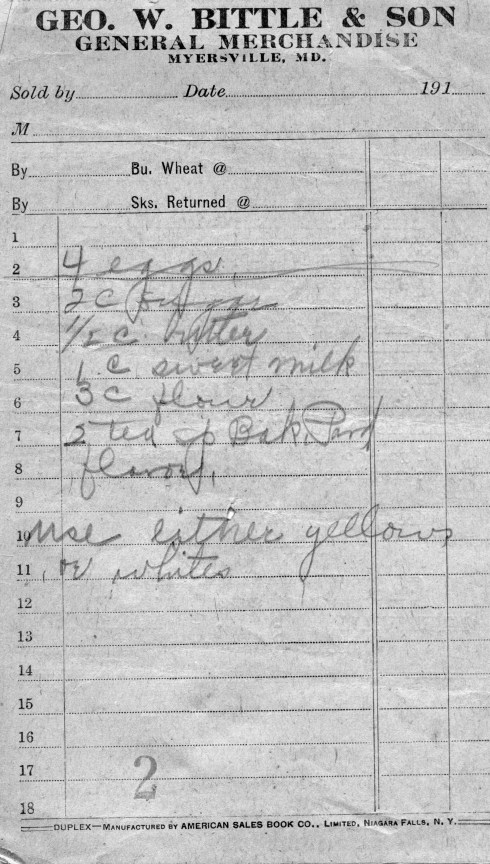 GEO. W. BITTLE & SON
GENERAL MERCHANDISE
MYERSVILLE, MD.
Sold by Date 191
M
By Bu. Wheat @
By Sks. Returned @
1
2 4 eggs
3 2 C sugar
4 1/2 C. butter
5 1 C sweet milk
6 3 C flour
7 2 tea sp Bak Powd
8 flavor,
9
10 use either yellows
11 or whites
12
13
14
15
16
17 2
18
DUPLEX—MANUFACTURED BY AMERICAN SALES BOOK CO., LIMITED, NIAGARA FALLS, N. Y.